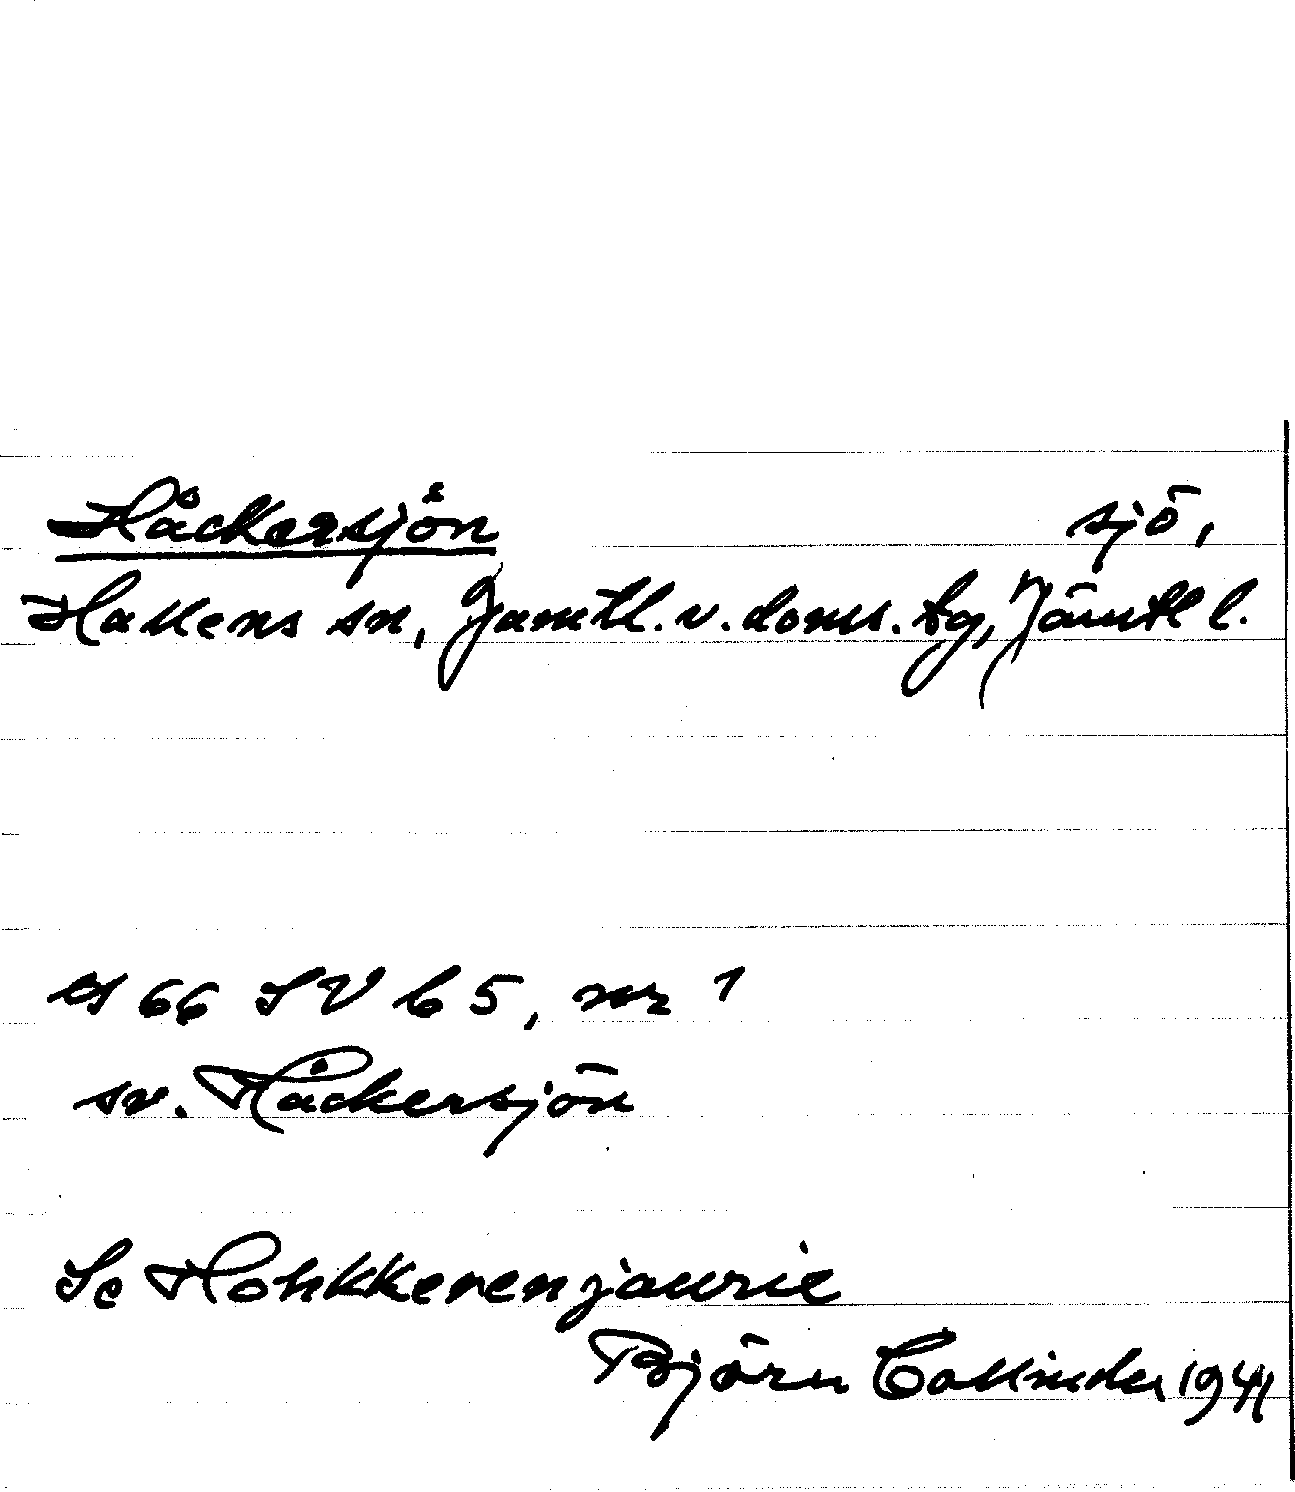 Håckersjön sjö,
Hallens sn, Jämtl. v. doms. tg, Jämtl l.
es 66 SV b 5, nr 1
sv. Håckersjön
Se Hohkkerenjaurie
Björn Collinder 1941